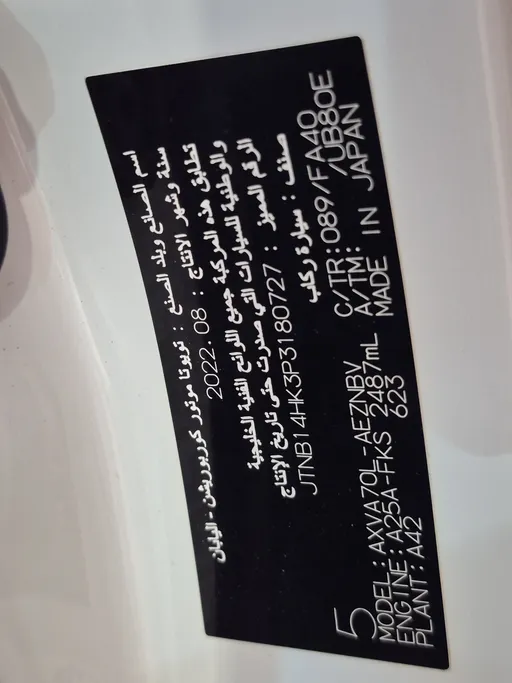 اسم الصانع وبلد الصنع : تويوتا موتور كوربوريشن - اليابان
سنة وشهر الانتاج : 2022.08
تطابق هذه المركبة جميع اللوائح الفنية الخليجية
و الوطنية للسيارات التي صدرت حتى تاريخ الإنتاج
الرقم المميز : JTNB14HK3P3180727
صنف : سيارة ركاب
5
MODEL : AXVA70L-AEZNBV C/TR: 089/FA40
ENGINE : A25A-FKS 2487mL A/TM: /UB80E
PLANT : A42 623 MADE IN JAPAN